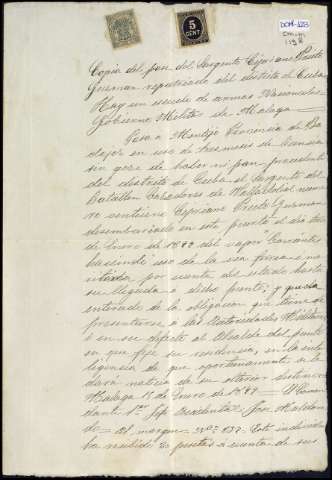 DOM-123
5
CENT.
Copia del pase del Sargento Cipriano Prieto
Guzman repatriado del distrito de Cuba
Hay un escudo de armas Nacionales
Gobierno Militar de Malaga
Pasa a Montijo Provincia de Ba
dajoz en uso de tres meses de licencia
sin goce de haber ni pan procedente
del distrito de Cuba el Sargento del
Batallon Cazadores de Valladolid nume
ro veintiuno Cipriano Prieto Guzman
desembarcado en este puerto el dia
de Enero de 1899 del vapor
haciendo uso de la via ferrea
por cuenta del estado hasta
su llegada a dicho punto, y queda
enterado de la obligacion que tiene de
presentarse á las Autoridades Militares
ó en su defecto al Alcalde del punto
en que fije su residencia, en la inte
ligencia de que oportunamente se le
dara noticia de su ulterior destino
Malaga 15 de Enero de 1899 El Coman
dante 1er Jefe Accidental José Maldona
do Al margen Nº 137 Este individuo
ha recibido pesetas a cuenta de sus